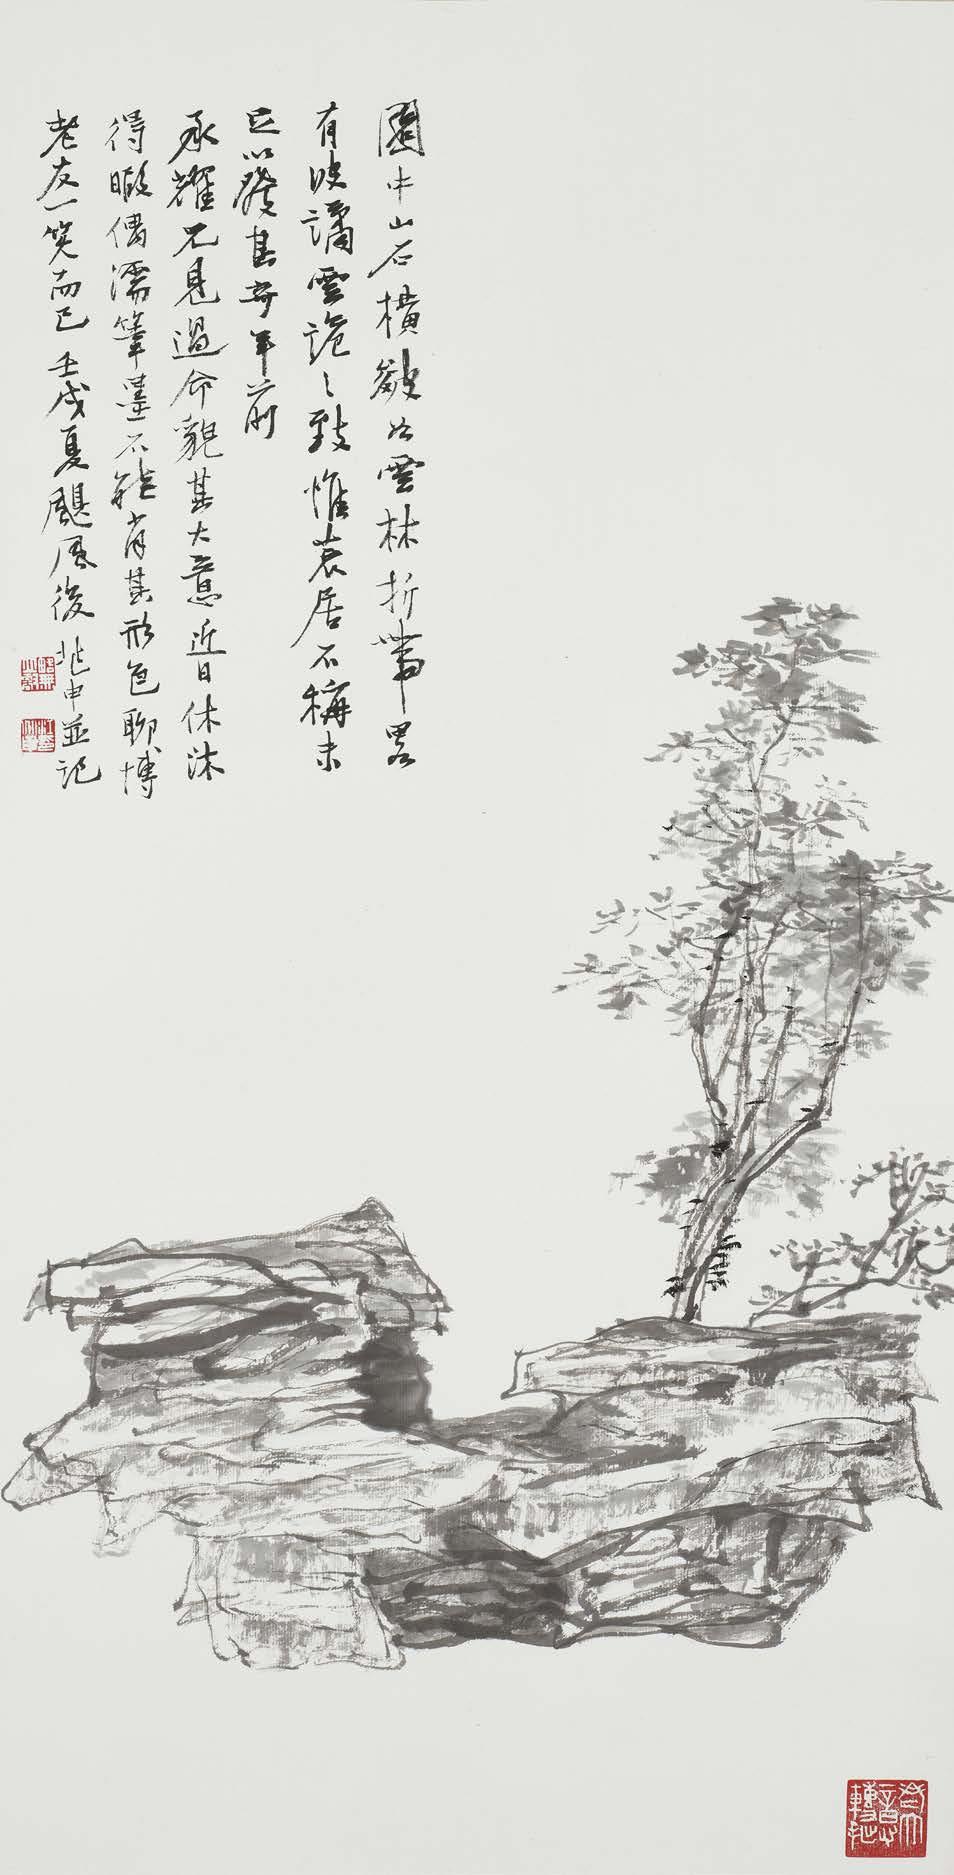 園中山石橫皴如雲林折帶畧
有波譎雲詭之致惟居不稱未
足以發其奇年前
承耀兄見過命貌其大意近日休沐
得暇偶濡筆墨不能肖其形色聊博
老友一笑而已 壬戌夏颶風後 兆申並記